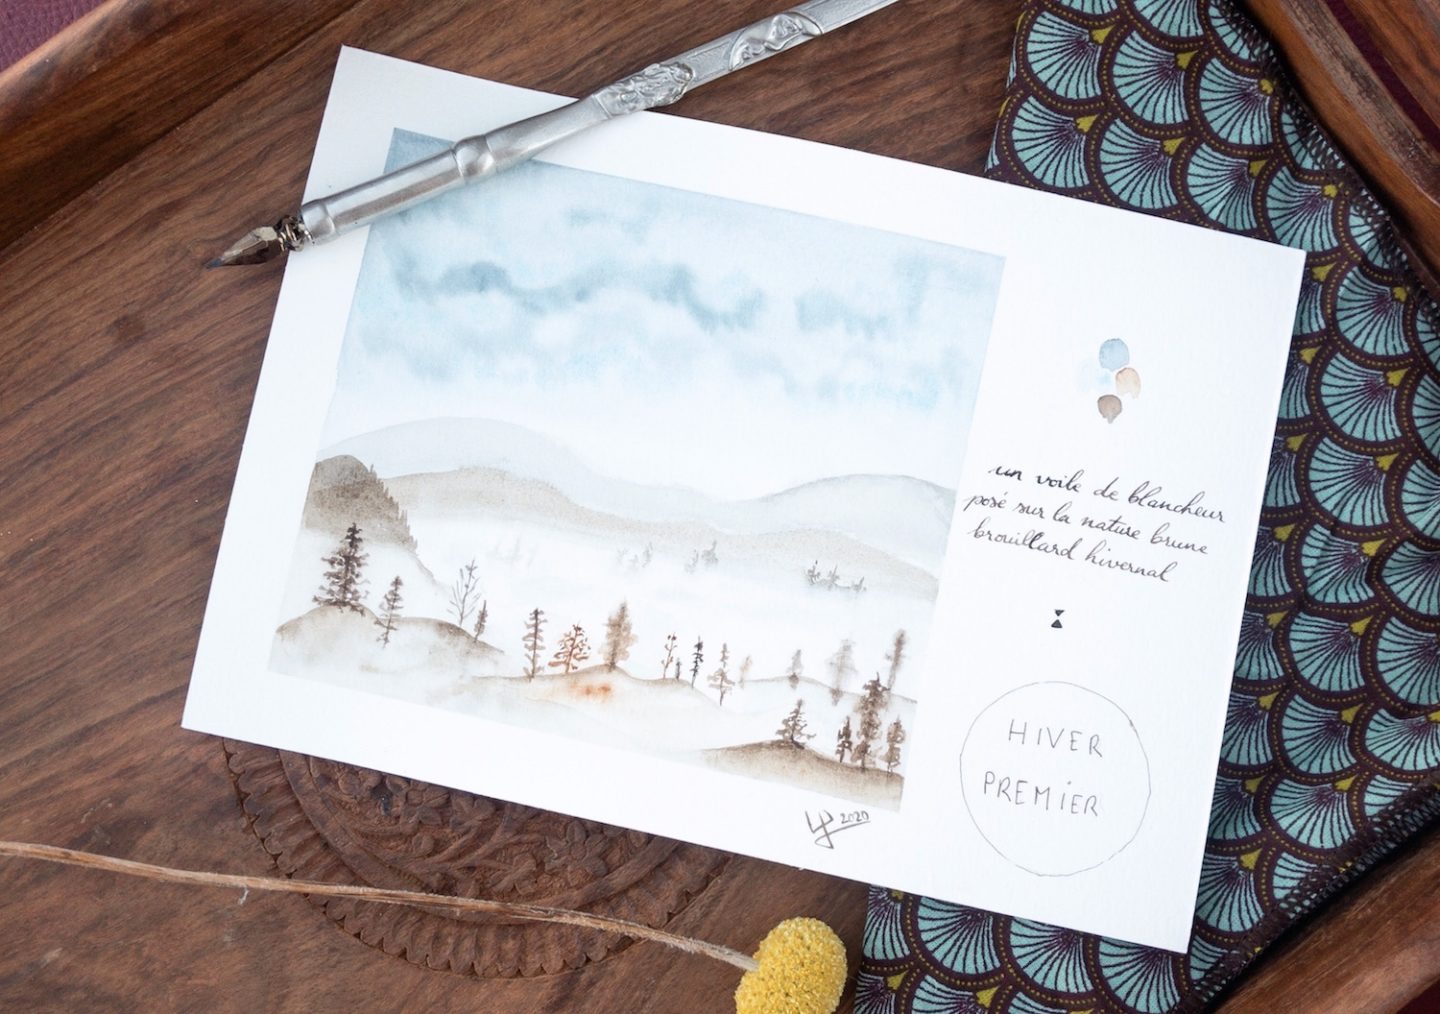 un voile de blancheur
posé sur la nature brune
brouillard hivernal
HIVER
PREMIER
2020